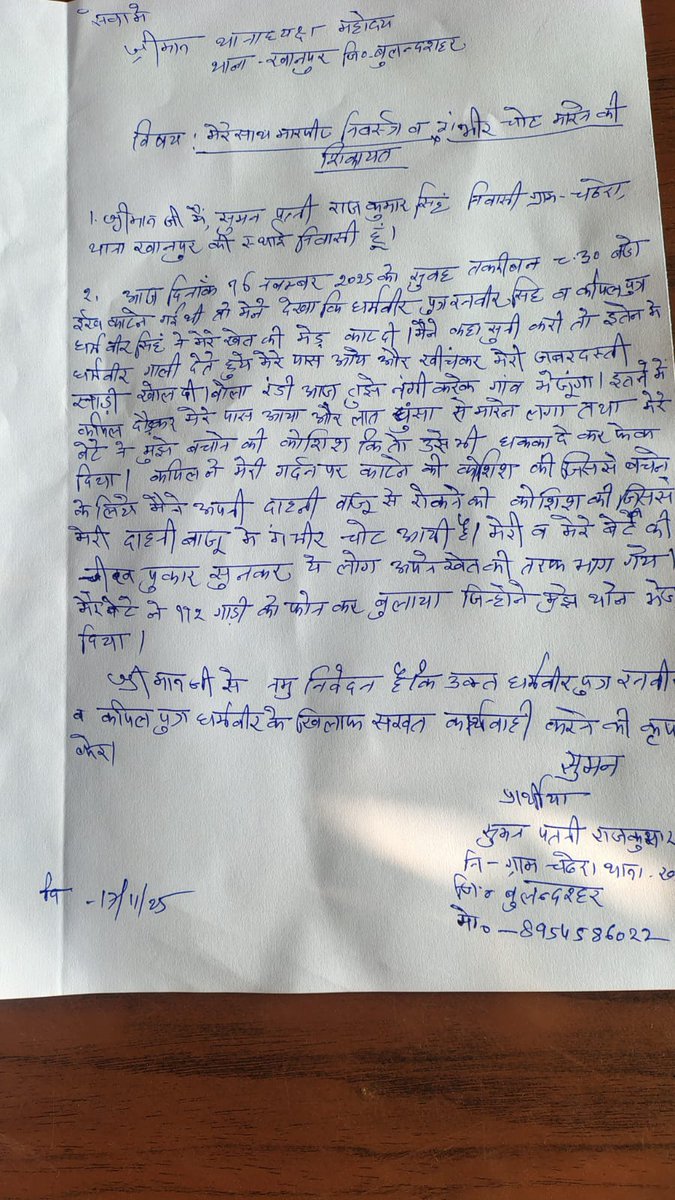 सेवा मे
श्रीमान थानाध्यक्ष महोदय
थाना - खानपुर जि० बुलन्दशहर
विषय : मेरे साथ मारपीट निवस्त्र व गंभीर चोट मारने की
शिकायत
1. श्रीमान जी मैं, सुमन पत्नी राजकुमार सिंह निवासी ग्राम - चढेरा,
थाना खानपुर की स्थाई निवासी हूँ।
२. आज दिनांक १६ नवम्बर २०२५ को सुबह तकरीबन ८:३० बजे
ईख काटने गई थी तो मेने देखा कि धर्मवीर पुत्र रनवीर सिंह व कपिल पुत्र
धर्मवीर सिंह ने मेरे खेत की मेड़ काट दी। मैंने कहा सुनी करी तो इतने मे
धर्मवीर गाली देते हुये मेरे पास आये और खींचकर मेरी जबरदस्ती
साड़ी खोल दी। बोला रंडी आज तुझे नंगी करके गाव भेजूंगा। इतने में
कपिल दौड़कर मेरे पास आया और लात घुंसा से मारने लगा तथा मेरे
बेटे ने मुझे बचाने की कोशिश कि तो उसे भी धकका दे कर फेक
दिया। कपिल ने मेरी गर्दन पर काटने की कोशिश की जिससे बचने
के लिये मैंने अपनी दाहनी बाजू से रोकने की कोशिश की जिससे
मेरी दाहनी बाजू मे गंभीर चोट आयी है। मेरी व मेरे बेटे की
चीख पुकार सुनकर ये लोग अपने खेत की तरफ भाग गये।
मेरे बेटे ने ११२ गाड़ी को फोन कर बुलाया जिन्होने मुझे थाने भेज
दिया।
श्रीमान जी से नम्र निवेदन है कि उक्त धर्मवीर पुत्र रनवी
व कपिल पुत्र धर्मवीर के खिलाफ सख्त कार्यवाही करने की कृप
करे।
सुमन
प्रार्थीया
सुमन पतनी राजकुमार
नि - ग्राम चढेरा थाना - ख
जि० बुलन्दशहर
मो० - 8954586022
दि - 17/11/25